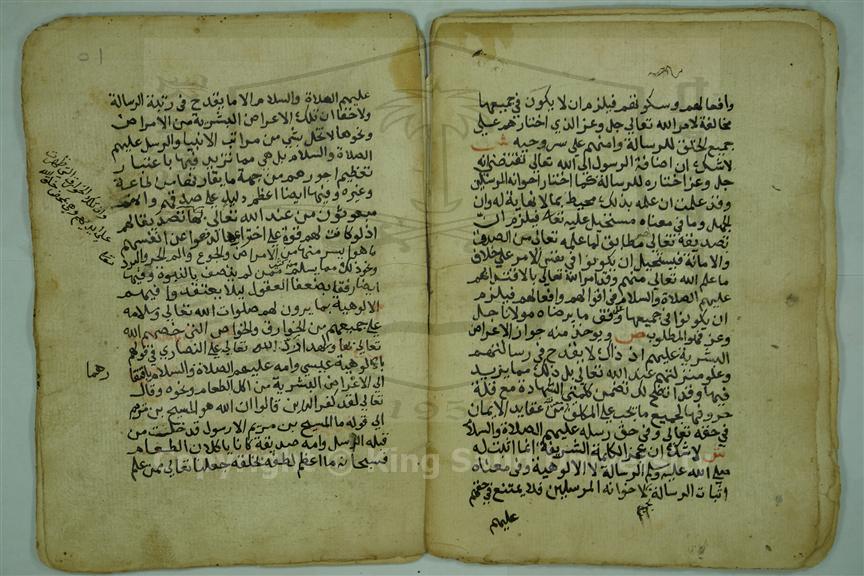 وافعالهم وسكوتهم فيلزم ان لا يكون في جميعها
مخالفة لامر الله تعالى جل وعز الذي اختارهم على
جميع الخلق للرسالة وامنهم على سر وحيه ش
لاشك ان اضافة الرسول الى الله تعالى تقتضي انه
جل وعز اختاره للرسالة كما اختار اخوانه المرسلين
وقد علمت ان علمه بذلك محيط بما لانهاية له وان
الجهل وما في معناه مستحيل عليه تعالى فيلزم ان
تصديقه تعالى مطابق لما علمه تعالى من الصدق
والامانة فيستحيل ان يكونوا في نفس الامر على خلاق
ما علم الله تعالى منهم وقد امر الله تعالى بالاقتداء بهم
عليهم الصلاة والسلام في اقوالهم وافعالهم فيلزم
ان يكونوا في جميعها على وفق ما يرضاه مولانا جل
وعز وهو المطلوب ص ويوخذ منه جواز الاعراض
البشرية عليهم اذ ذاك لا يقدح في رسالتهم
وعلو منزلتهم عند الله تعالى بل ذلك مما يزيد
فيها وقد اتضح لك تضمن كلمتي الشهادة مع قلة
حروفها لجميع ما يجب على المكلف من عقايد الايمان
في حقه تعالى وفي حق رسله عليهم الصلاة والسلام
ش لاشك ان عجز الكلمة الشريفة انما اثبت له
صلى الله عليه وسلم الرسالة لا الالوهية وفي معناه
اثبات الرسالة لاخوانه المرسلين فلا يمتنع في حقهم
عليهم
٥١
عليهم الصلاة والسلام الا ما يقدح في رتبة الرسالة
ولاخفا ان تلك الاعراض البشرية من الامراض
ونحوها لا تخل بشي من مراتب الانبيا والرسل عليهم
الصلاة والسلام بل هي مما تزيد فيها باعتبار
تعظيم اجورهم من جهة ما يقارنها من طاعة
وغيره وفيها ايضا اعظم دليل على صدقهم وانهم
مبعوثون من عند الله تعالى
اذ لو كانت لهم قوة على اختراعها لدفعوا عن انفسهم
ما هو ايسر منها من الامراض والجوع والم الحر والبرد
ونحو ذلك مما يسلم منه كثير ممن لم يتصف بالنبوة وفيها
ايضا رفقا بضعفا العقول ليلا يعتقدوا فيهم
الالوهية بما يرون لهم صلوات الله تعالى وسلامه
على جميعهم من الخوارق والخواص التي خصهم الله
تعالى بها ولهذا رد الله تعالى على النصارى في قولهم
بالوهية عيسى وامه عليهم الصلاة والسلام
الى الاعراض البشرية من اكل الطعام ونحوه وقال
تعالى لقد كفر الذين قالوا ان الله هو المسيح بن مريم
الى قوله ما المسيح بن مريم الا رسول قد خلت من
قبله الرسل وامه صديقة كانا ياكلان الطعام
فسبحانه ما اعظم لطفه بخلقه جعلنا تعالى ممن علم
Copyright © King Saud University
195